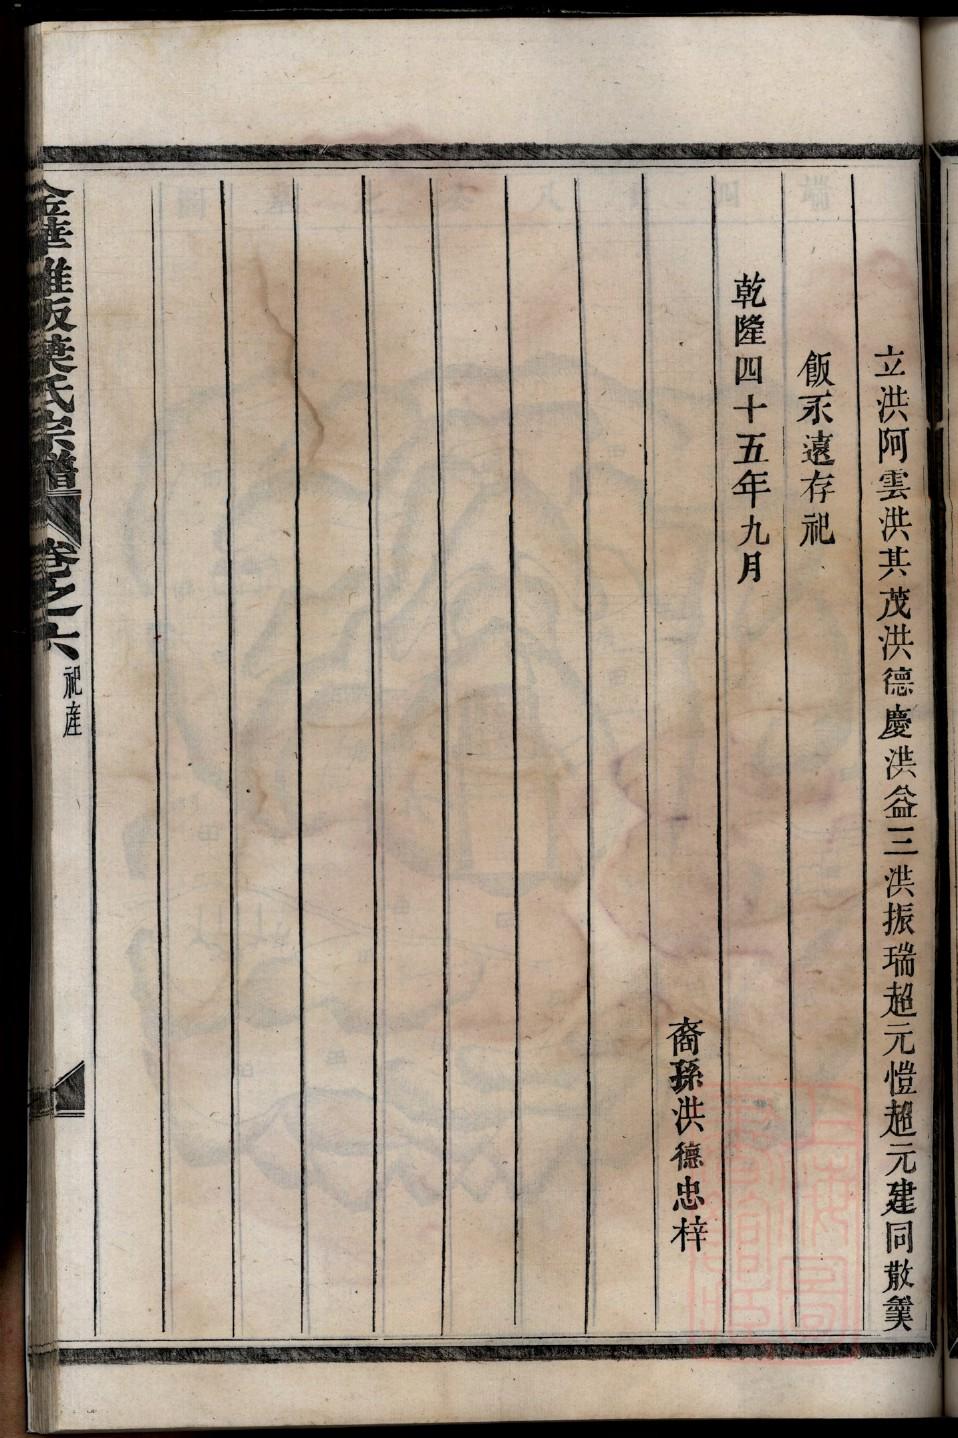 立洪阿雲洪其茂洪德慶洪益三洪振瑞超元愷超元建同散羹
飯永遠存祀
乾隆四十五年九月
裔孫洪德忠梓
金華雅畈葉氏宗譜 卷之六 祀産